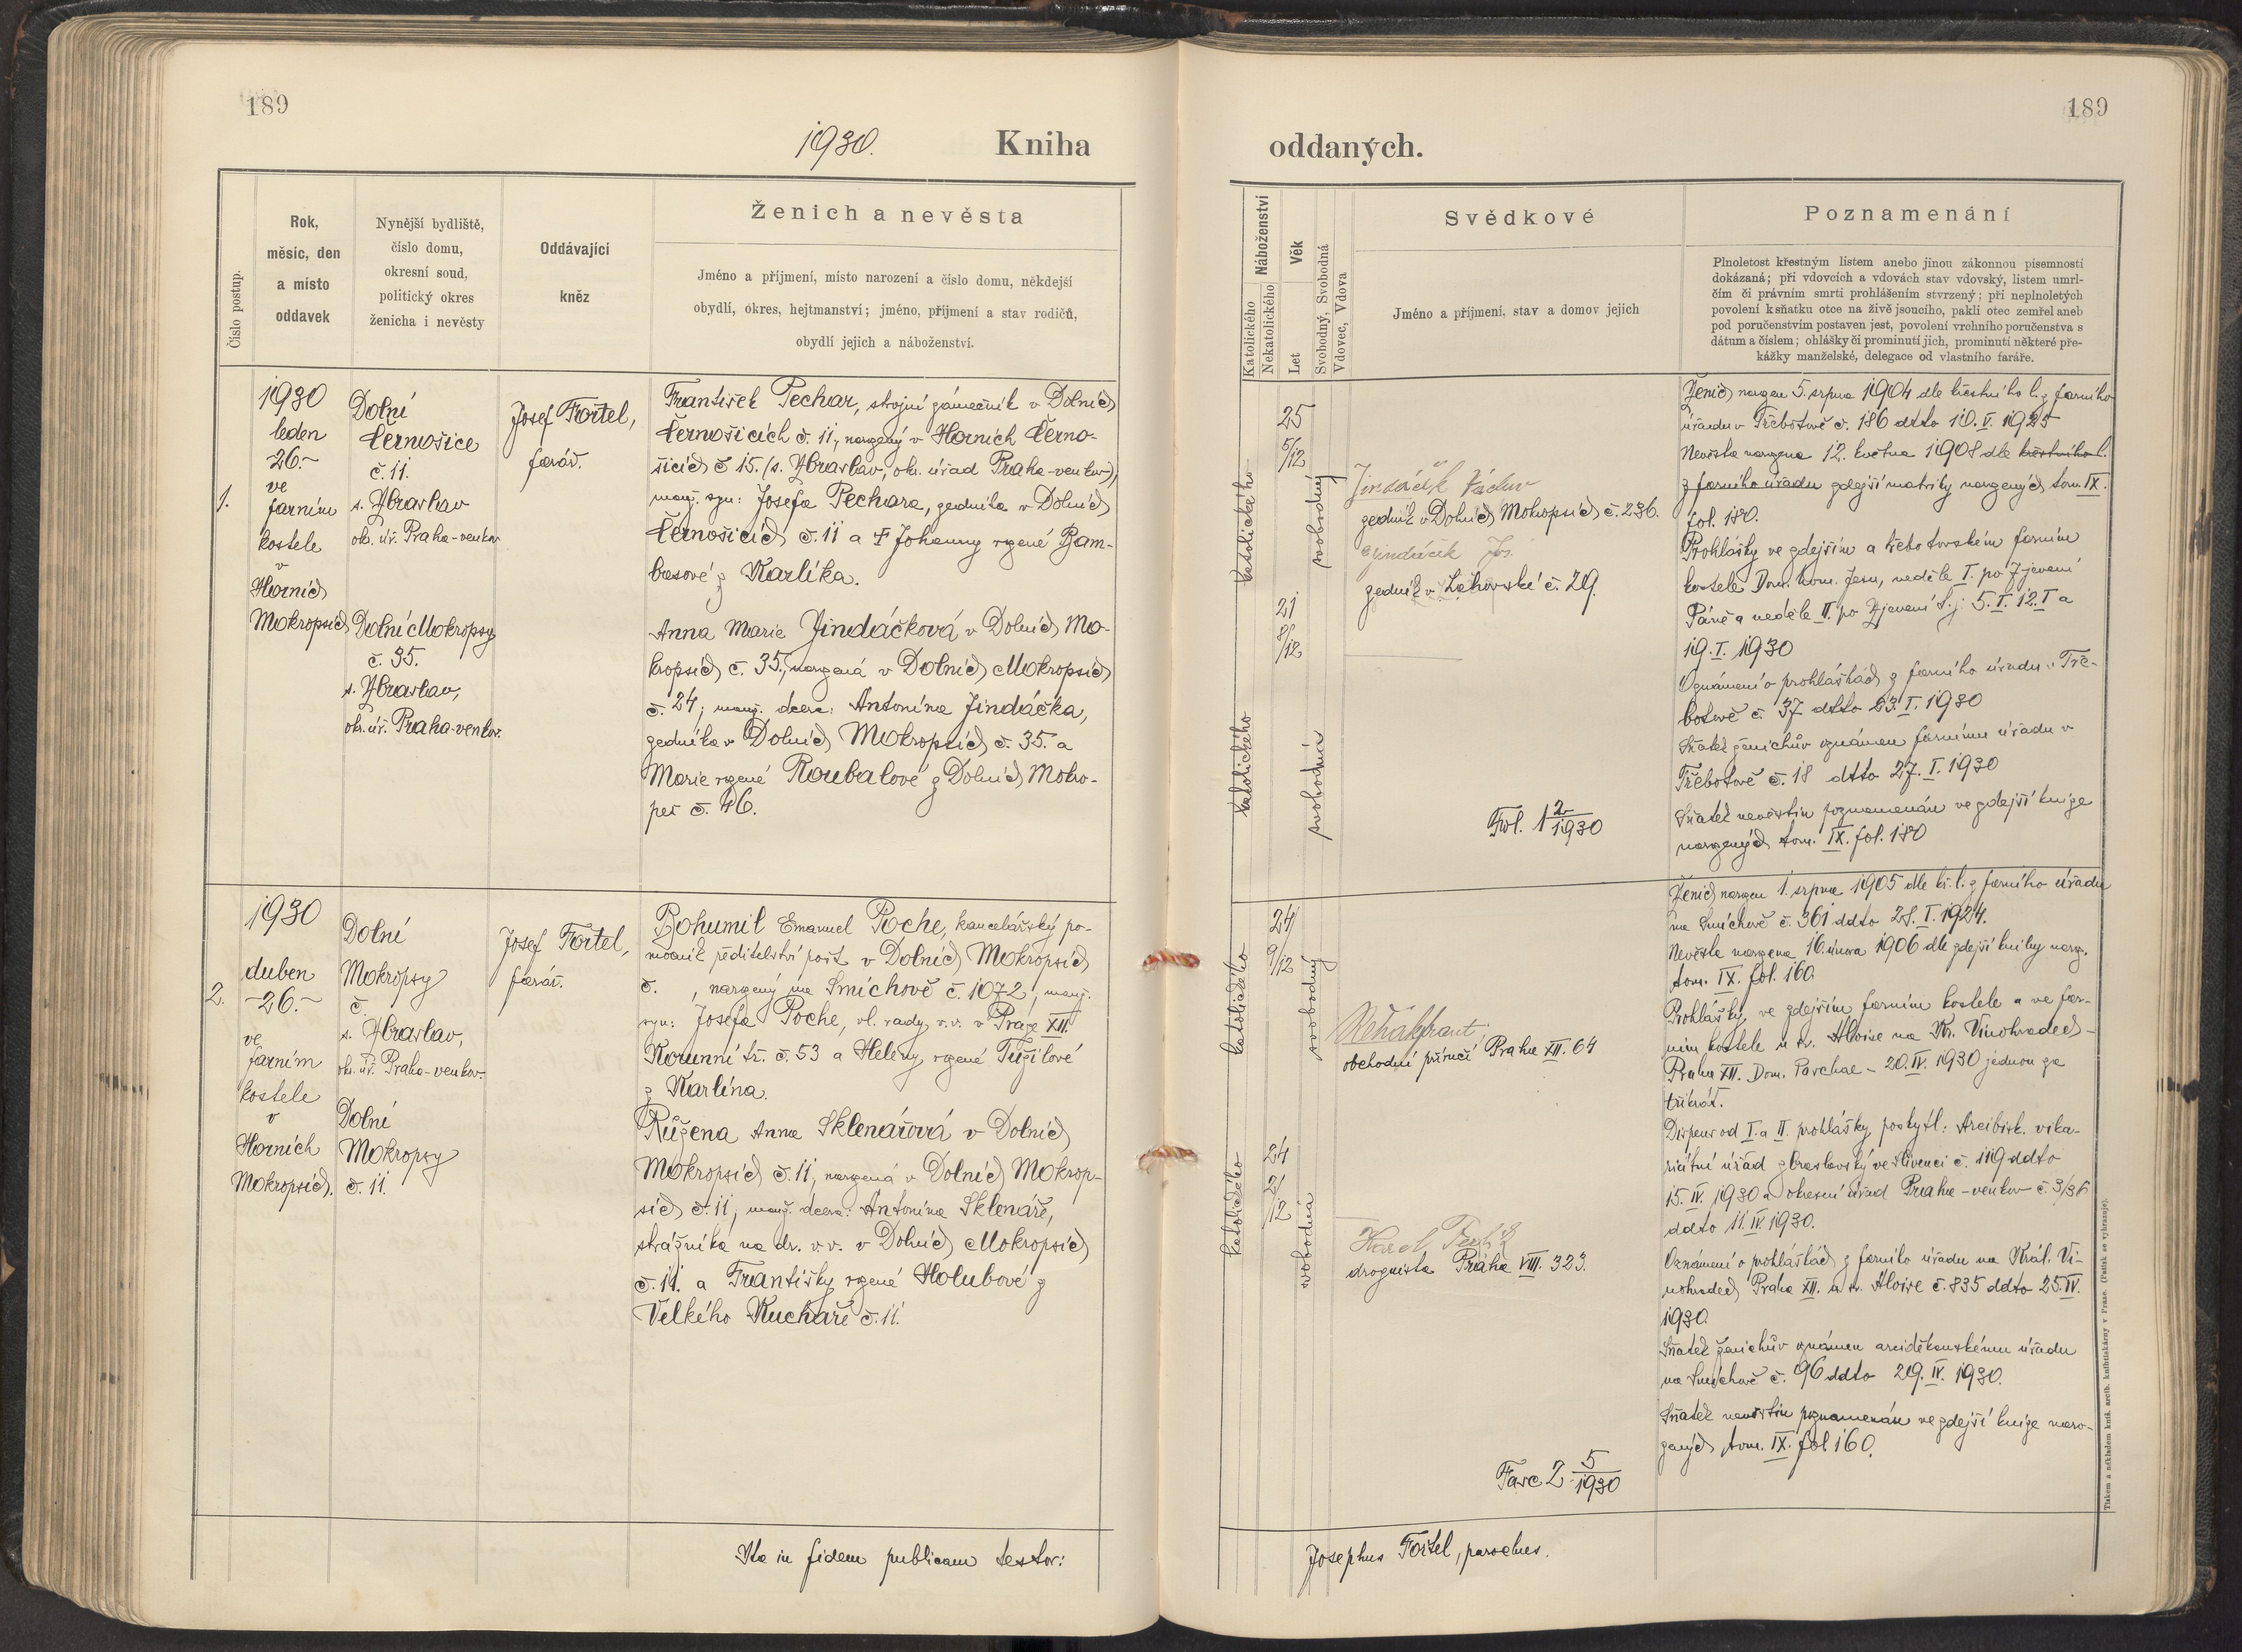 189
1930.
Kniha
Číslo postup.
Rok,
měsíc, den
a místo
oddavek
Nynější bydliště,
číslo domu,
okresní soud,
politický okres
ženicha i nevěsty
Oddávající
kněz
Ženich a nevěsta
Jméno a příjmení, místo narození a číslo domu, někdejší
obydlí, okres, hejtmanství; jméno, příjmení a stav rodičů,
obydlí jejich a náboženství.
1.
1930
leden
-26.-
ve
farním
kostele
v
Horních
Mokropsích
Dolní
Černošice
č. 11.
s. Zbraslav
ok. úř. Praha-venkov
Dolní Mokropsy
č. 35.
s. Zbraslav,
ok. úř. Praha-venkov.
Josef Fořtel,
farář.
František Pechar, strojní zámečník v Dolních
Černošicích č. 11, narozený v Horních Černo-
šicích č 15. (s. Zbraslav, ok. úřad Praha-venkov),
manž. syn: Josefa Pechara, zedníka v Dolních
Černošicích č. 11 a † Johanny rozené
z Karlíka.
Anna Marie Jindáčková v Dolních Mo-
kropsích č. 35., narozená v Dolních Mokropsích
č. 24; manž. dcera: Antonína Jindáčka,
zedníka v Dolních Mokropsích č. 35. a
Marie rozené Roubalové z Dolních Mokro-
pes č. 46.
2.
1930
duben
-26.-
ve
farním
kostele
v
Horních
Mokropsích.
Dolní
Mokropsy
č.
s. Zbraslav,
ok. úř. Praha-venkov.
Dolní
Mokropsy
č. 11.
Josef Fořtel,
farář.
Bohumil Emanuel Poche, kancelářský po-
mocník ředitelství pošt v Dolních Mokropsích
č. , narozený na Smíchově č. 1072, manž.
syn: Josefa Poche, vl. rady v.v. v Praze XII.
Korunní tř. č. 53 a Heleny rozené Tužilové
z Karlína.
Růžena Anna Sklenářová v Dolních
Mokropsích č. 11, narozená v Dolních Mokrop-
sích č. 11, manž. dcera: Antonína Sklenáře,
strážníka na dr. v.v. v Dolních Mokropsích
č. 11. a Františky rozené Holubové z
Velkého Kuchaře č. 11.
Ita in fidem publicam testor:
189
oddaných.
Náboženství
Katolického
Nekatolického
Věk
Let
Svobodný, Svobodná
Vdovec, Vdova
Svědkové
Jméno a příjmení, stav a domov jejich
Poznamenání
Plnoletost křestným listem anebo jinou zákonnou písemností
dokázaná; při vdovcích a vdovách stav vdovský, listem umrl-
čím či právním smrti prohlášením stvrzený; při neplnoletých
povolení k sňatku otce na živě jsoucího, pakli otec zemřel aneb
pod poručenstvím postaven jest, povolení vrchního poručenstva s
dátum a číslem; ohlášky či prominutí jich, prominutí některé pře-
kážky manželské, delegace od vlastního faráře.
katolického
25
5/12
svobodný
Jindáček Václav
zedník v Dolních Mokropsích č. 236.
Jindáček Jos.
zedník v č. 29.
katolického
21
8/12
svobodná
Fol. 1 2/1930
Ženich narozen 5. srpna 1904 dle křestního l. z farního
úřadu v Třebotově č. 186 ddto 10. V. 1925
Nevěsta narozena 12. května 1908 dle křestního l.
z farního úřadu zdejší matriky narozených tom. IX.
fol. 180.
Prohlášky ve zdejším a třebotovském farním
kostele Dom. Nom. Jesu, neděle I. po Zjevení
Páně a neděle II. po Zjevení t.j. 5. I. 12. I a
19. I. 1930
Oznámení o prohláškách z farního úřadu v Tře-
botově č. 37 ddto 23. I. 1930
Sňatek ženichův oznámen farnímu úřadu v
Třebotově č. 18 ddto 27. I. 1930
Sňatek nevěstin poznamenán ve zdejší knize
narozených tom. IX. fol. 180
katolického
24
9/12
svobodný
obchodní příručí Praha XII. 64
katolického
24
2/12
svobodná
Karel
drogista Praha VIII. 323.
Fasc 2 5/1930
Ženich narozen 1. srpna 1905 dle kř. l. z farního úřadu
na Smíchově č. 361 ddto 28. I. 1924.
Nevěsta narozena 16. února 1906 dle zdejší knihy naroz.
tom. IX. fol. 160.
Prohlášky ve zdejším farním kostele a ve far-
ním kostele u sv. Aloise na Kr. Vinohradech -
Praha XII. Dom. Paschae - 20. IV. 1930 jednou za
třikrát.
Dispens od I. a II. prohlášky poskytl: Arcibisk. vika-
riátní úřad zbraslavský ve Slivenci č. 119 ddto
15. IV. 1930 a okresní úřad Praha-venkov č. 3/36
ddto 11. IV. 1930.
Oznámení o prohláškách z farního úřadu na Král. Vi-
nohradech Praha XII. u sv. Aloise č. 835 ddto 25. IV.
1930.
Sňatek ženichův oznámen arciděkanskému úřadu
na Smíchově č. 96 ddto 29. IV. 1930.
Sňatek nevěstin poznamenán ve zdejší knize naro-
zených tom. IX. fol 160.
Josephus Fořtel, parochus.
Tiskem a nákladem kníž. arcib. knihtiskárny v Praze. (Padělek se vyhrazuje).